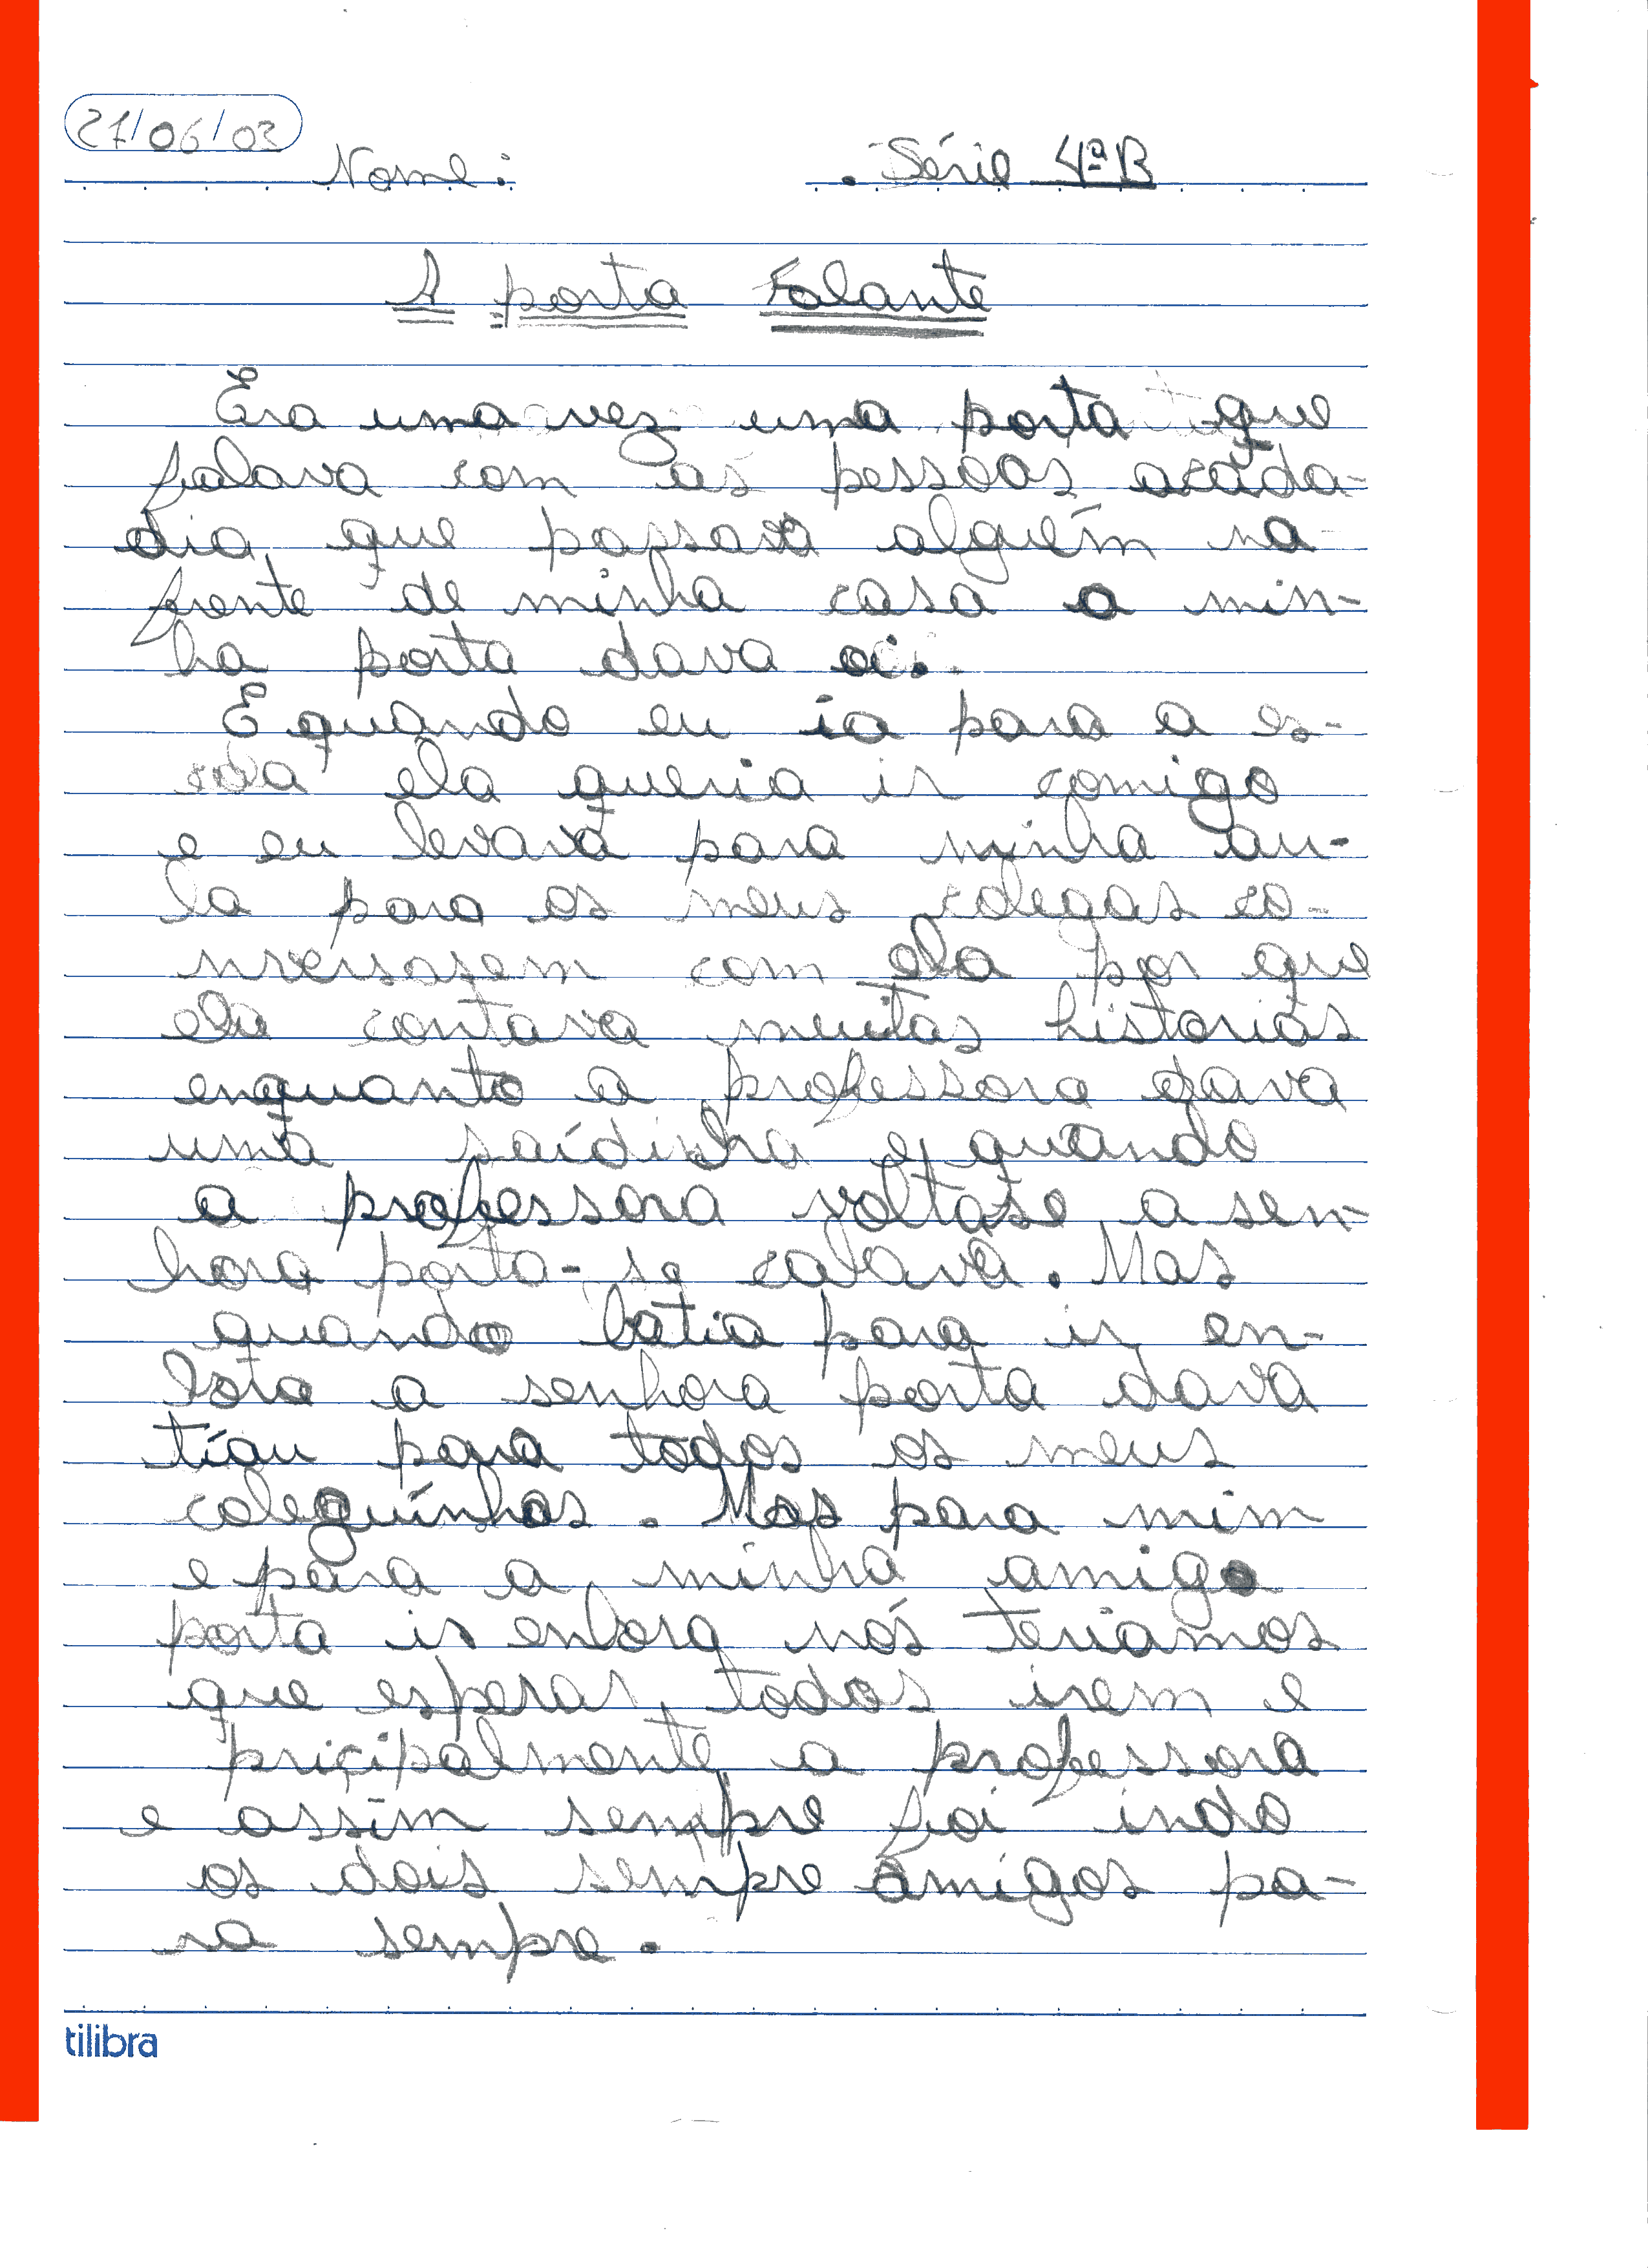 27/06/03
Nome: . Série 4ªB
A porta Falante
Era uma vez uma porta que
falava com as pessoas acada-
dia que passava alguém na
frente de minha casa a min-
ha porta dava oi.
E quando eu ia para a es-
cola ela queria ir comigo
e eu levava para minha au-
la para os meus colegas co-
nversasem com ela por que
ela contava muitas historias
enquanto a professora dava
uma saídinha e quando
a professora voltase a sen-
hora porta-se calava. Mas
quando batia para ir en-
bora a senhora porta dava
tíau para todos os meus
coleguínhas. Mas para mim
e para a minha amiga
porta ir enbora nós teriamos
que esperar todos irem e
pricipalmente a professora
e assim sempre foi indo
os dois sempre amigos pa-
ra sempre.
tilibra